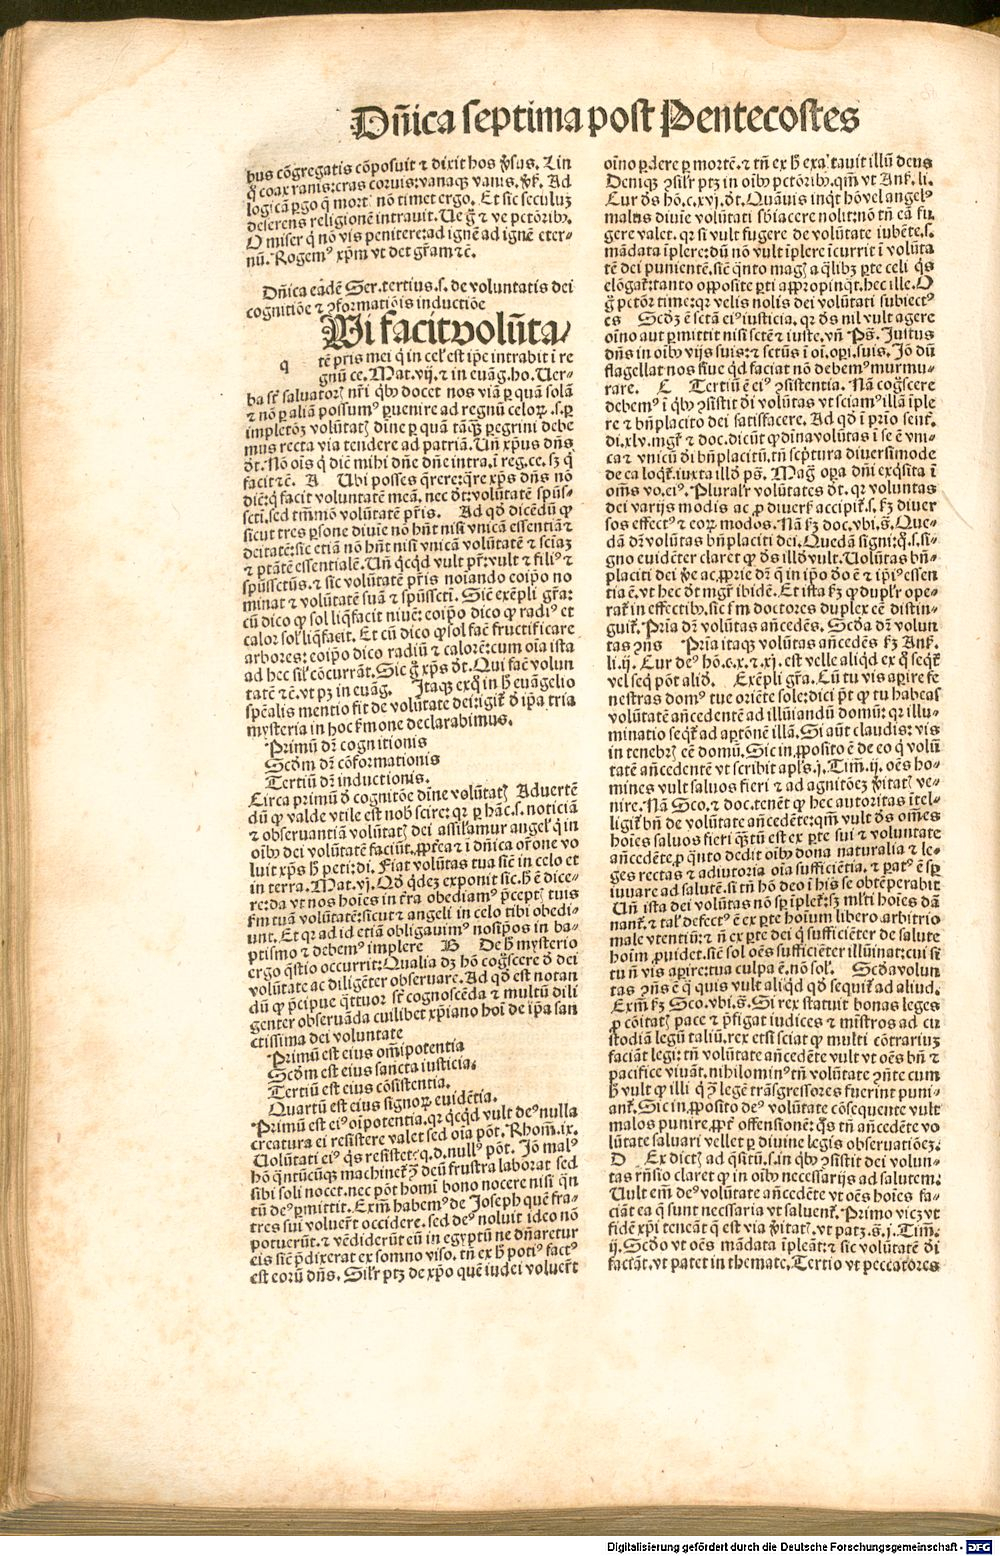 Dñica septima post Pentecostes
bus cōgregatis cōposuit ⁊ dixit hos ṽsus. Lin
q̄ coax ranis: cras coruis: vanaqꝫ vanis. ⁊c̃. Ad
logicā ꝑgo q̄ mort⁹ nō timet ergo. Et sic seculuꝫ
deserens religionē intrauit. Ue g̊ ⁊ ve pctōribꝰ.
O miser q̄ nō vis penitere: ad ignē ad ignē eter-
nū. Rogem⁹ xp̄m vt det gr̄am ⁊c̄.
Dñica eadē Ser. tertius. s. de voluntatis dei
cognitiōe ⁊ ꝯformatiōis inductiōe
Qui facit volūta/
q
tē pr̄is mei q̄ in cel̓ est ip̄e intrabit ī re
gnū ce. Mat. vij. ⁊ in euāg. ho. Uer-
ba sr̄t saluatorꝭ nr̄i qͥbꝰ docet nos viā ꝑ quā solā
⁊ nō ꝑ aliā possum⁹ ꝑuenire ad regnū celoꝝ. s. ꝑ
impletōꝫ volūtatꝭ diīne ꝑ quā tāqꝫ ꝑegrini debe
mus recta via tendere ad patriā. Uñ xp̄us dn̄s
d̄t. Nō oīs q̄ dic̄ mihi dn̄e dn̄e intra. ī reg. ce. sꝫ q̄
facit ⁊c̄. A Ubi posses q̄rere: q̄re xp̄s dn̄s nō
dic̄: q̄ facit voluntatē meā. nec d̄t: volūtatē sp̄us-
scti. sed tm̄mō volūtatē pr̄is. Ad qd̄ dicēdū ꝙ
sicut tres ꝑsone diuīe nō hn̄t nisi vnicā essentiā ⁊
deitatē: sic etiā nō hn̄t nisi vnicā volūtatē ⁊ sciaꝫ
⁊ ptātē essentialē. Uñ qcqd vult pr̄: vult ⁊ fili⁹ ⁊
spūssctūs. ⁊ sic volūtatē pr̄is noīando eoip̄o no
minat ⁊ volūtatē suā ⁊ spūsscti. Sic̄ exēpli gr̄a:
cū dico ꝙ sol liqfacit niuē: eoip̄o dico ꝙ radi⁹ et
calor sol̓ liqfacit. Et cū dico ꝙ sol fac̄ fructificare
arbores: eoip̄o dico radiū ⁊ calorē: cum oīa ista
ad hec sil̓ cōcurrāt. Sic g̊ xp̄s d̄t. Qui fac̄ volun
tatē ⁊c̄. vt pꝫ in euāg. Itaqꝫ exq̄ in h̄ euāgelio
spēalis mentio fit de volūtate dei: igit̓ d̄ ip̄a tria
mysteria in hoc s̄mone declarabimus.
Primū dr̄ cognitionis
Scd̄m dr̄ cōformationis
Tertiū dr̄ inductionis.
Circa primū d̄ cognitōe diīne volūtatꝭ Aduertē
dū ꝙ valde vtile est nob̓ scire: qꝛ ꝑ hāc. s. noticiā
⁊ obseruantiā volūtatꝭ dei assil̓amur angel̓ q̄ in
oībꝰ dei volūtatē faciūt. ꝓpt̓ea ⁊ ī dñica or̄one vo
luit xp̄s h̄ peti: di. Fiat volūtas tua sic̄ in celo et
in terra. Mat. vj. Qd̄ q̄deꝫ exponit sic. h̄ ē dice-
re: da vt nos hoīes in t̄ra obediam⁹ p̄ceptꝭ tuis
s̄m tuā volūtatē: sicut ⁊ angeli in celo tibi obedi-
unt. Et qꝛ ad id etiā obligauim⁹ nosip̄os in ba-
ptismo ⁊ debem⁹ implere B De h̄ mysterio
ergo q̄stio occurrit: Qualia dꝫ hō cogscere d̄ dei
volūtate ac diligēter obseruare. Ad qd̄ est notan
dū ꝙ p̄cipue q̄ttuor sr̄t cognoscēda ⁊ multū dili
genter obseruāda cuilibet xp̄iano hoī de ip̄a san
ctissima dei voluntate
Primū est eius om̄ipotentia
Scd̄m est eius sancta iusticia.
Tertiū est eius cōsistentia.
Quartū est eius signoꝝ euidētia.
Primū est ei⁹ oīpotentia. qꝛ qcqd vult de⁹ nulla
creatura ei resistere valet sed oīa pōt. Rhom̄. ix.
Uolūtati ei⁹ q̄s resistet: q. d. null⁹ pōt. Jō mal⁹
hō q̄ntūcūqꝫ machinet̓ ꝯ̄ deū frustra laborat sed
sibi soli nocet. nec pōt homī bono nocere nisi q̄n
tū de⁹ ꝑmittit. Exm̄ habem⁹ de Joseph quē fra-
tres sui voluer̄t occidere. sed de⁹ noluit ideo nō
potuerūt. ⁊ vēdiderūt eū in egyptū ne dn̄aretur
eis sic̄ p̄dixerat ex somno viso. tn̄ ex h̄ poti⁹ fact⁹
est eorū dn̄s. Sil̓r ptꝫ de xp̄o quē iudei voluer̄t
oīno ꝑdere ꝑ mortē. ⁊ tn̄ ex h̄ exaltauit illū deus
Deniqꝫ ꝯsil̓r ptꝫ in oībꝰ pctōribꝰ. qm̄ vt Ans̓. li.
Cur ds̄ hō. c. xvj. d̄t. Quāuis inqt hō vel angel⁹
malus diuīe volūtati sb̄iacere nolit: nō tn̄ eā fu
gere valet. qꝛ si vult fugere de volūtate iubēte. s.
mādata īplere: dū nō vult īplere īcurrit ī volūta
tē dei punientē. sic̄ q̄nto magꝭ a q̄libꝫ ꝑte celi q̄s
elōgat̓: tanto opposite ꝑti appropinqt. hec ille. O
g̊ pctōr time: qꝛ velis nolis dei volūtati subiect⁹
es Scd̄ꝫ ē sctā ei⁹ iusticia. qꝛ ds̄ nil vult agere
oīno aut ꝑmittit nisi sctē ⁊ iuste. vn̄ Ps̄. Justus
dn̄s in oībꝰ vijs suis: ⁊ sctūs ī oī. oꝑi. suis. Jō dū
flagellat nos siue qd faciat nō debem⁹ murmu-
rare. C Tertiū ē ei⁹ ꝯsistentia. Nā cogscere
debem⁹ ī qͥbꝰ ꝯsistit dī volūtas vt sciam⁹ illā īple
re ⁊ bn̄placito dei satisfacere. Ad qd̄ ī pr̄io sent̄.
di. xlv. mgr̄ ⁊ doc. dicūt ꝙ diīna volūtas ī se ē vni-
ca ⁊ vnicū dī bn̄placitū. tn̄ sc̄ptura diuersimode
de ea loqt̓. iuxta illd̄ ps̄. Mag̊ oꝑa dn̄i exq̄sita ī
om̄s vo. ei⁹. Plural̓r volūtates d̄t. qꝛ voluntas
dei varijs modis ac ꝓ diuers̓ accipit̓. s. ẜꝫ diuer
sos effect⁹ ⁊ eoꝝ modos. Nā ẜꝫ doc. vbi. s̄. Que-
dā dr̄ volūtas bn̄placiti dei. Quedā signi: q̄. s. si-
gno euidēter claret ꝙ ds̄ illd̄ vult. Uolūtas bn̄-
placiti dei v̄e ac ꝓprie dr̄ q̄ in ip̄o dō ē ⁊ ip̄i⁹ essen
tia ē. vt hec d̄t mgr̄ ibidē. Et ista ẜꝫ ꝙ dupl̓r ope-
rat̓ in effectibꝰ. sic s̄m doctores duplex cē distin-
guit̓. Pria dr̄ volūtas ān̄cedēs. Scd̄a dr̄ volun
tas ꝯn̄s Pria itaqꝫ volūtas ān̄cedēs ẜꝫ Ans̓.
li. ij. Cur de⁹ hō. c. x. ⁊ xj. est velle aliqd ex q̄ seqt̓
vel seq̄ pōt alid̄. Exēpli gr̄a. Cū tu vis aꝑire fe
nestras dom⁹ tue oriēte sole: dici pōt ꝙ tu habeas
volūtatē ān̄cedentē ad illūiandū domū: qꝛ illu-
minatio seqt̓ ad aꝑtōnē illā. Si aūt claudis: vis
in tenebrꝭ cē domū. Sic in ꝓposito ē de eo q̄ volū
tatē ān̄cedentē vt scribit apl̄s. j. Tim̄. ij. oēs ho-
mines vult saluos fieri ⁊ ad agnitōeꝫ ṽitatꝭ ve-
nire. Nā Sco. ⁊ doc. tenēt ꝙ hec autoritas ītel-
ligit̓ bn̄ de volūtate ān̄cedēte: qm̄ vult ds̄ om̄es
hoīes saluos fieri q̄ꝫtū est ex ꝑte sui ⁊ voluntate
ān̄cedēte. ꝓ q̄nto dedit oībꝰ dona naturalia ⁊ le-
ges rectas ⁊ adiutoria oīa sufficiētia. ⁊ ꝑat⁹ ē sꝑ
iuuare ad salutē. si tn̄ hō deo ī his se obtēperabit
Uñ ista dei volūtas nō sꝑ īplet̓: sꝫ ml̓ti hoīes dā
nant̓. ⁊ tal̓ defect⁹ ē ex ꝑte hoīum libero arbitrio
male vtentiū: ⁊ n̄ ex ꝑte dei q̄ sufficiēter de salute
hoīm ꝓuidet. sic̄ sol oēs sufficiēter illūinat: cui si
tu n̄ vis aꝑire: tua culpa ē. nō sol̓. Scd̄a volun
tas ꝯn̄s ē q̄ quis vult aliqd qd̄ sequit̓ ad aliud.
Exm̄ ẜꝫ Sco. vbi. s̄. Si rex statuit bonas leges
ꝓ cōitatꝭ pace ⁊ p̄figat iudices ⁊ mīstros ad cu
stodiā legū taliū. rex etsi sciat ꝙ multi cōtrariuꝫ
faciāt legi: tn̄ volūtate ān̄cedēte vult vt oēs bn̄ ⁊
pacifice viuāt. nihilomin⁹ tn̄ volūtate ꝯn̄te cum
h̄ vult ꝙ illi q̄ ꝯ̄ legē trāsgressores fuerint puni-
ant̓. Sic in ꝓposito de⁹ volūtate cōsequente vult
malos punire. ꝓpt̓ offensionē: q̄s tn̄ ān̄cedēte vo
lūtate saluari vellet ꝑ diuine legis obseruatiōeꝫ.
D Ex dictꝭ ad q̄sitū. s. in qͥbꝰ ꝯsistit dei volun-
tas rn̄sio claret ꝙ in oībꝰ necessarijs ad salutem.
Uult em̄ de⁹ volūtate ān̄cedēte vt oēs hoīes fa-
ciāt ea q̄ sunt necessaria vt saluent̓. Primo vicꝫ vt
fidē xp̄i teneāt q̄ est via ṽitatꝭ. vt patꝫ. s̄. j. Tim̄.
ij. Scd̄o vt oēs mādata īpleāt: ⁊ sic volūtatē dī
faciāt. vt patet in themate. Tertio vt peccatores
Digitalisierung gefördert durch die Deutsche Forschungsgemeinschaft - DFG